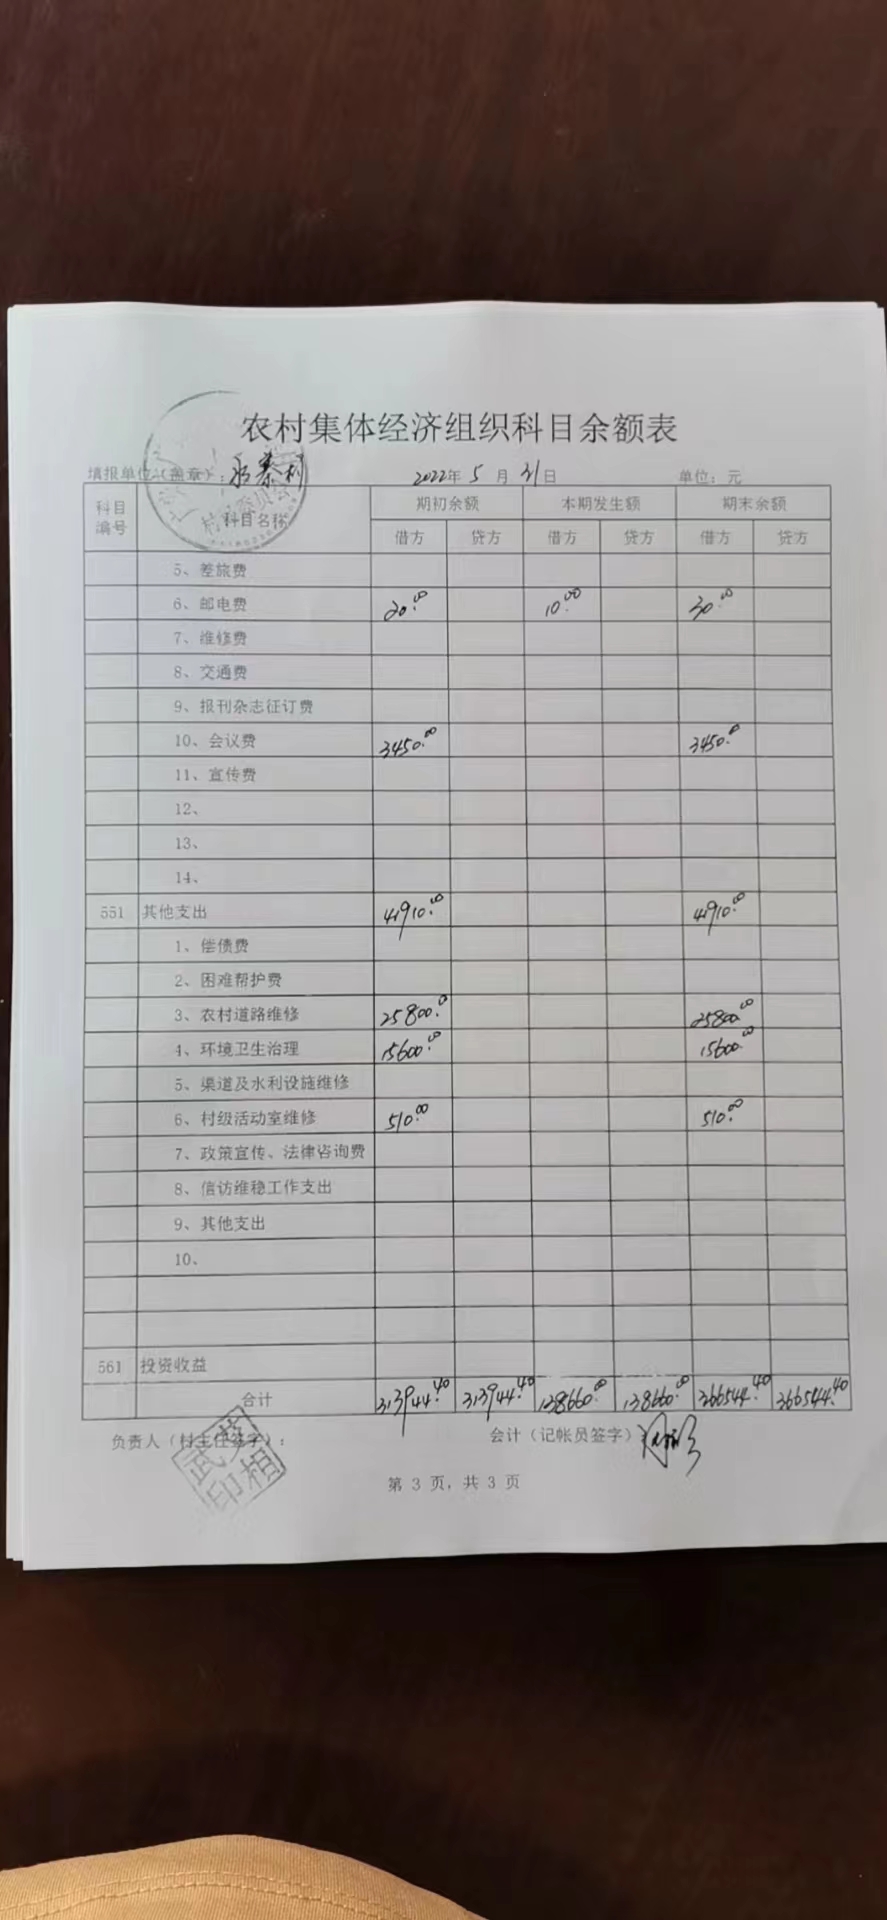 农村集体经济组织科目余额表
填报单位（盖章）：寨村 2022年 5 月 31日 单位：元
科目编号 科目名称 期初余额 本期发生额 期末余额
借方 贷方 借方 贷方 借方 贷方
5、差旅费
6、邮电费 20.00 10.00 30.00
7、维修费
8、交通费
9、报刊杂志征订费
10、会议费 3450.00 3450.00
11、宣传费
12、
13、
14、
551 其他支出 41910.00 41910.00
1、偿债费
2、困难帮护费
3、农村道路维修 25800.00 25800.00
4、环境卫生治理 15600.00 15600.00
5、渠道及水利设施维修
6、村级活动室维修 510.00 510.00
7、政策宣传、法律咨询费
8、信访维稳工作支出
9、其他支出
10、
561 投资收益
合计 313944.40 313944.40 138660.00 138660.00 366544.40 366544.40
负责人（村主任签字）： 会计（记帐员签字）
第 3 页，共 3 页